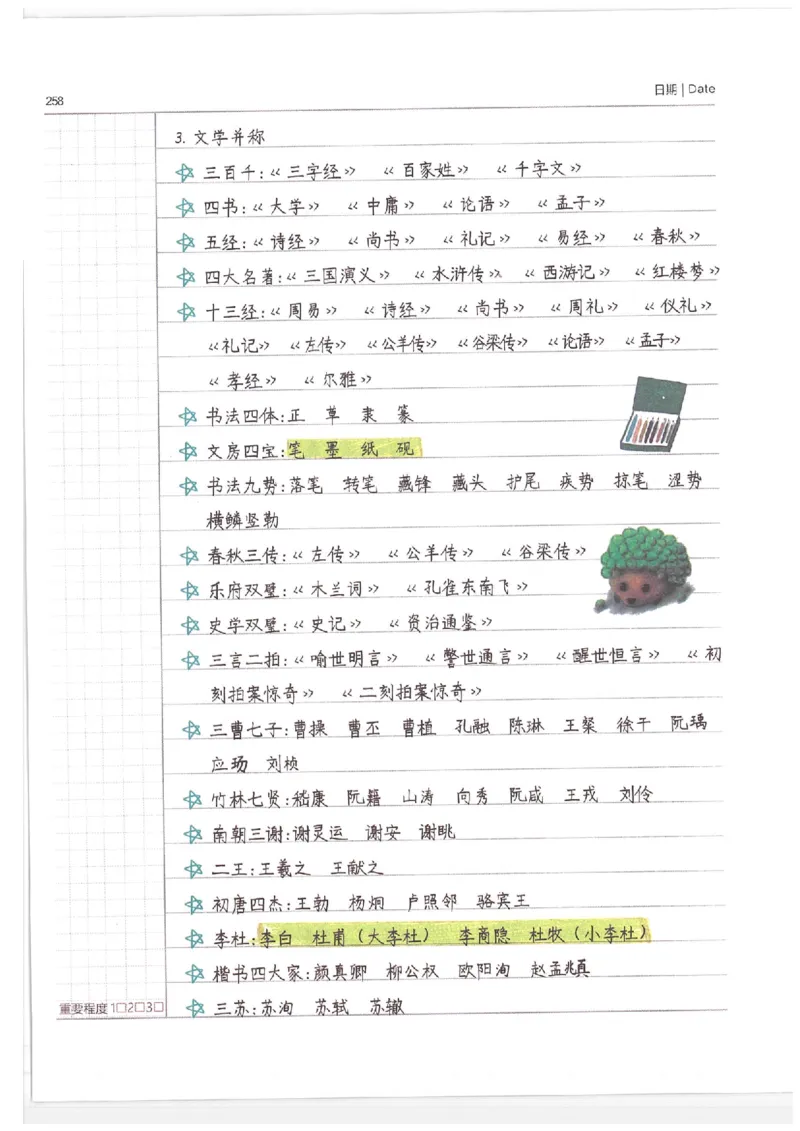 258
日期 | Date
3. 文学并称
三百千:《三字经》 《百家姓》 《千字文》
四书:《大学》 《中庸》 《论语》 《孟子》
五经:《诗经》 《尚书》 《礼记》 《易经》 《春秋》
四大名著:《三国演义》 《水浒传》 《西游记》 《红楼梦》
十三经:《周易》 《诗经》 《尚书》 《周礼》 《仪礼》
《礼记》 《左传》 《公羊传》 《谷梁传》 《论语》 《孟子》
《孝经》 《尔雅》
书法四体:正 草 隶 篆
文房四宝:笔 墨 纸 砚
书法九势:落笔 转笔 藏锋 藏头 护尾 疾势 掠笔 涩势
横鳞竖勒
春秋三传:《左传》 《公羊传》 《谷梁传》
乐府双璧:《木兰词》 《孔雀东南飞》
史学双璧:《史记》 《资治通鉴》
三言二拍:《喻世明言》 《警世通言》 《醒世恒言》 《初
刻拍案惊奇》 《二刻拍案惊奇》
三曹七子:曹操 曹丕 曹植 孔融 陈琳 王粲 徐干 阮瑀
应玚 刘桢
竹林七贤:嵇康 阮籍 山涛 向秀 阮咸 王戎 刘伶
南朝三谢:谢灵运 谢安 谢眺
二王:王羲之 王献之
初唐四杰:王勃 杨炯 卢照邻 骆宾王
李杜:李白 杜甫(大李杜) 李商隐 杜牧(小李杜)
楷书四大家:颜真卿 柳公权 欧阳洵 赵孟兆真
三苏:苏洵 苏轼 苏辙
重要程度 1□2□3□